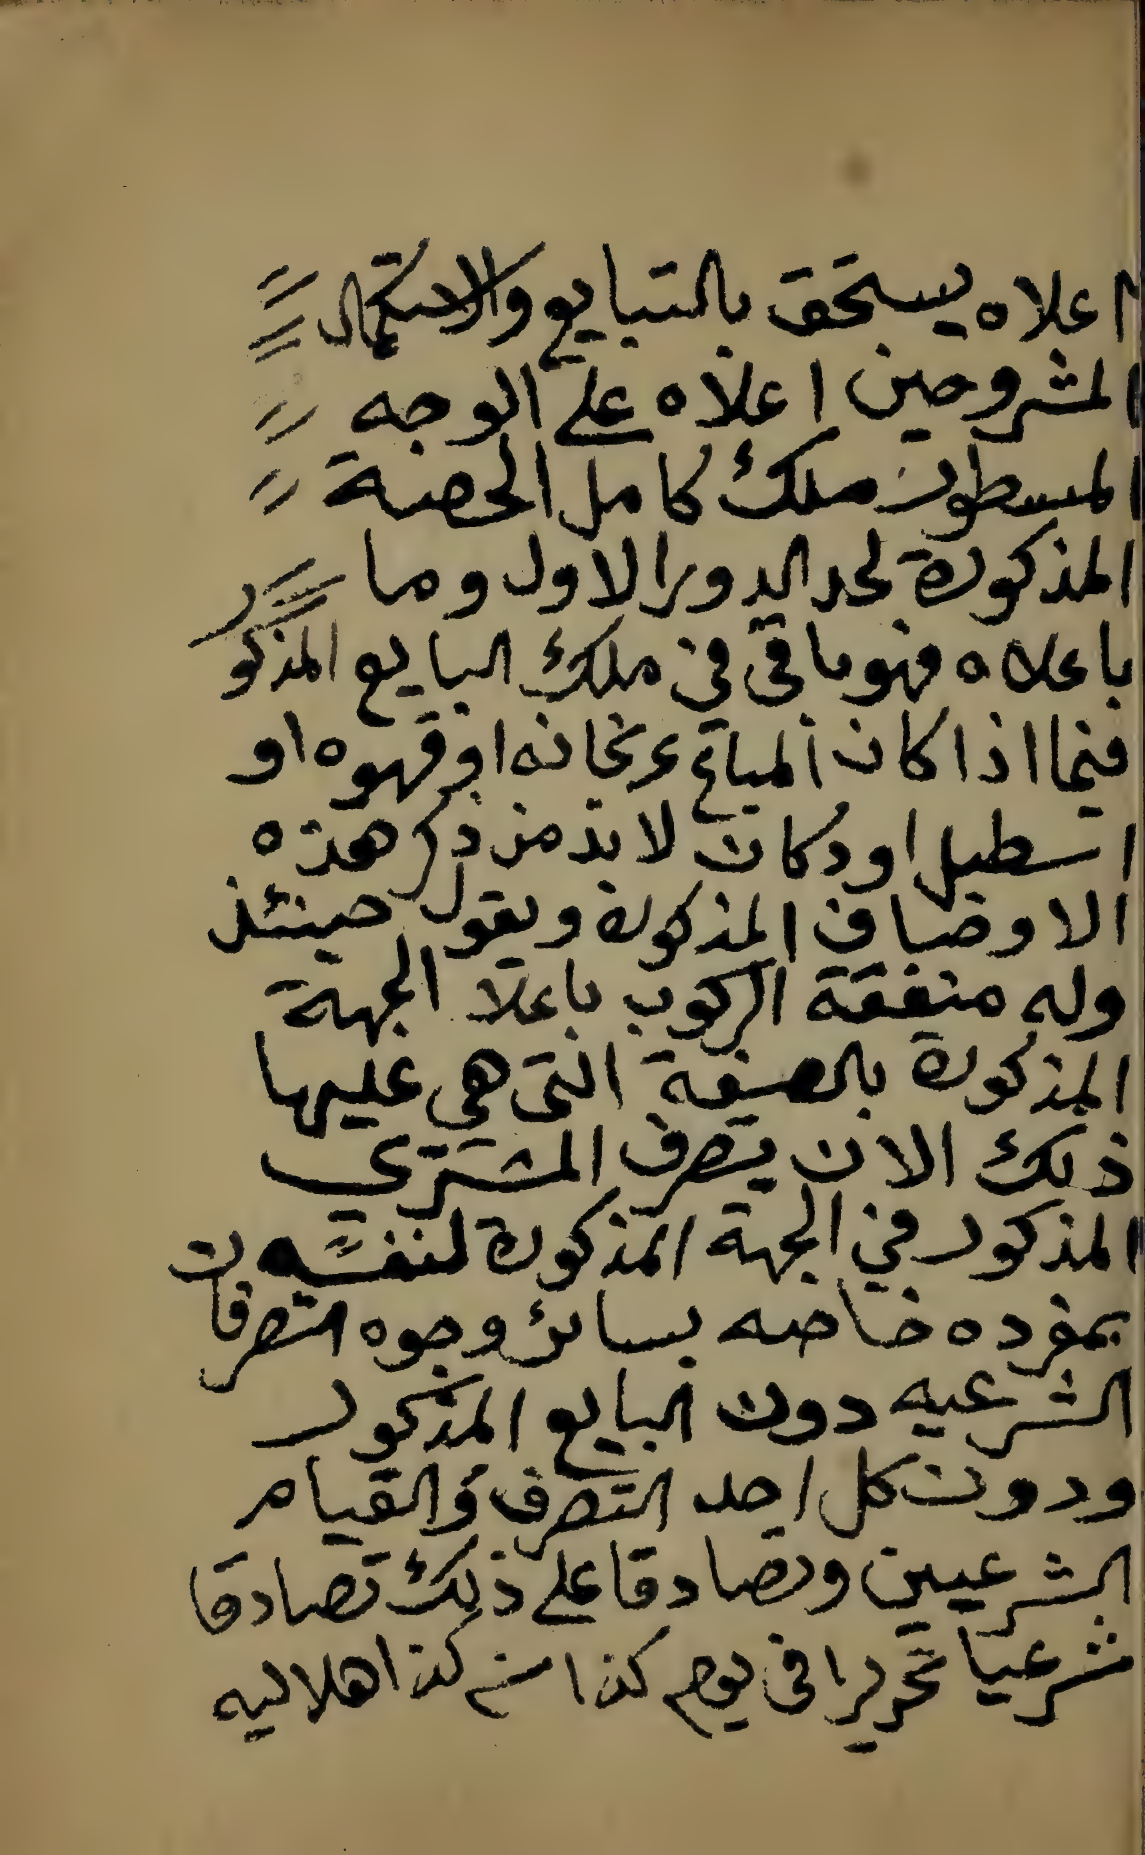 اعلاه يستحق بالتبايع والاستكمال
المشروحين اعلاه على الوجه
المسطور ملك كامل الحصة
المذكورة لحد الدور الاول وما
باعلاه فهو باقي في ملك البايع المذكور
فيما اذا كان المباع عربخانه او قهوه او
اسطبل او دكان لا بد من ذكر هذه
الاوصاف المذكورة ويقول حينئذ
وله منفقة الركوب باعلا الجهة
المذكورة بالصفة التي هي عليها
ذلك الان يتصرف المشتري
المذكور في الجهة المذكورة لنفسه
بمفرده خاصه بسائر وجوه التصرفات
الشرعيه دون البايع المذكور
ودون كل احد التصرف والقيام
الشرعيين وتصادقا على ذلك تصادقا
شرعيا تحريرا في يوم كذا سنه كذا هلاليه